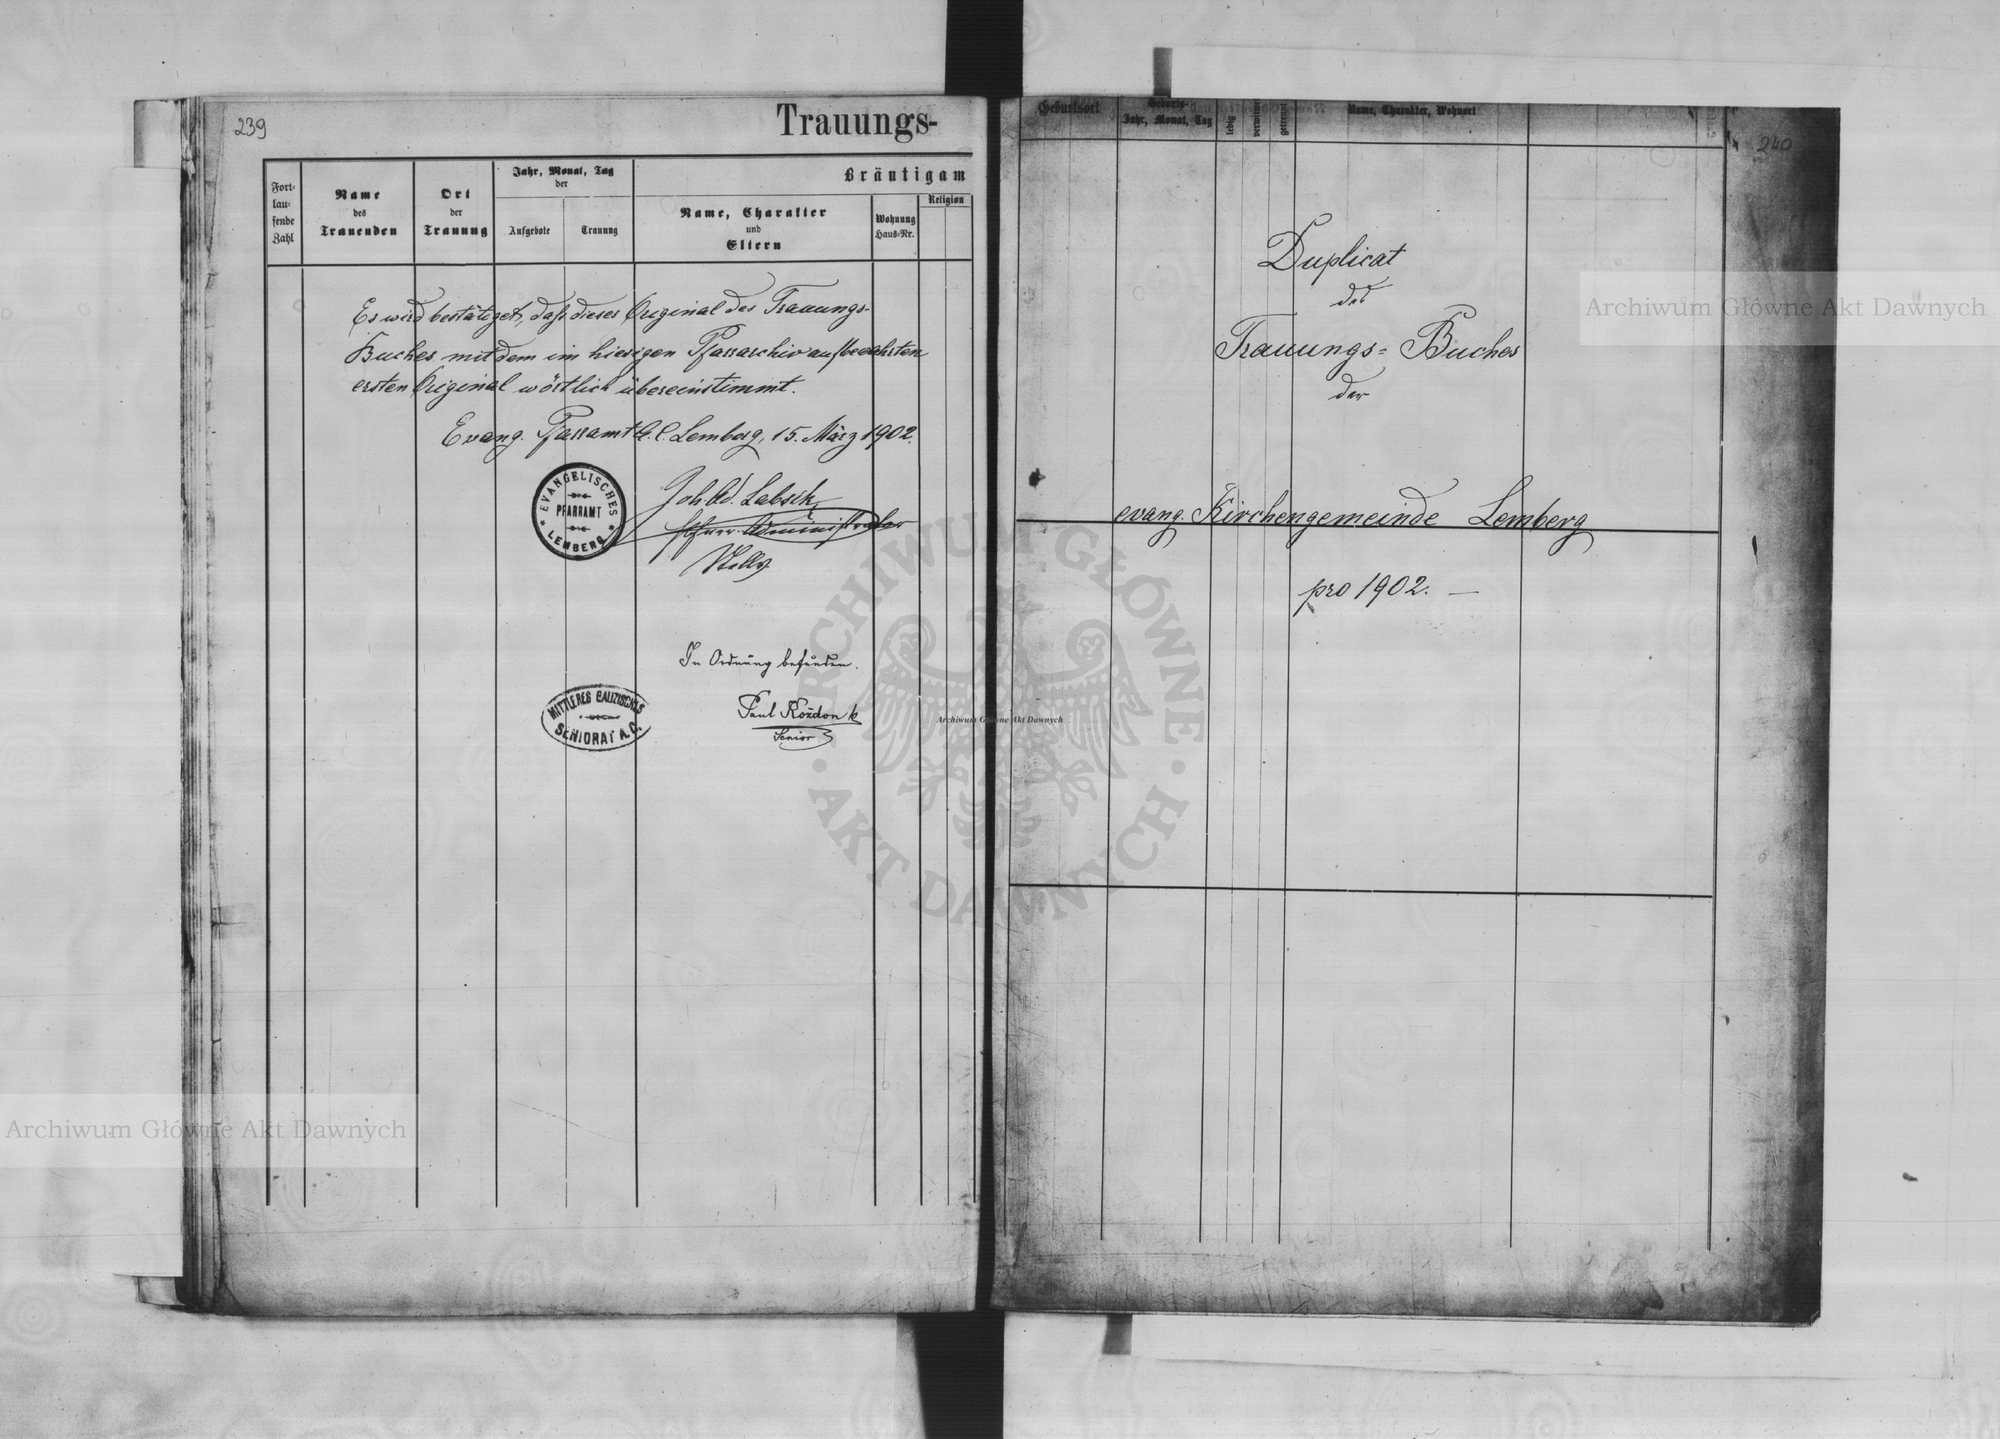 239
Trauungs-
Fort-
lau-
fende
Zahl
Name
des
Trauenden
Ort
der
Trauung
Jahr, Monat, Tag
der
Aufgebote
Trauung
Bräutigam
Name, Charakter
und
Eltern
Wohnung
Haus-Nr.
Religion
Es wird bestätiget, daß dieses Original des Trauungs-
Buches mit dem im hiesigen Pfarrarchiv aufbewahrten
ersten Original wörtlich übereinstimmt.
Evang. Pfarramt A. C. Lemberg, 15. März 1902.
EVANGELISCHES
PFARRAMT
LEMBERG
Joh. Ad. Labsik
Pfarr-Administrator
In Ordnung befunden.
MITTLERES GALIZISCHES
SENIORAT A. C.
Paul Kożdon
Senior
Geburtsort
Geburts-
Jahr, Monat, Tag
ledig
verwitwet
getrennt
Name, Charakter, Wohnort
240
Duplicat
des
Trauungs-Buches
der
evang. Kirchengemeinde Lemberg
pro 1902. —
Archiwum Główne Akt Dawnych
Archiwum Główne Akt Dawnych
Archiwum Główne Akt Dawnych
ARCHIWUM GŁÓWNE
· AKT DAWNYCH ·